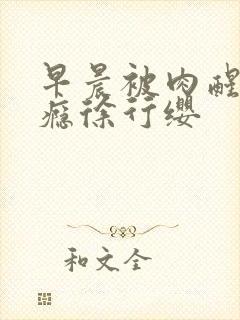 早晨被肉醒
瘾徐行缨
和文全